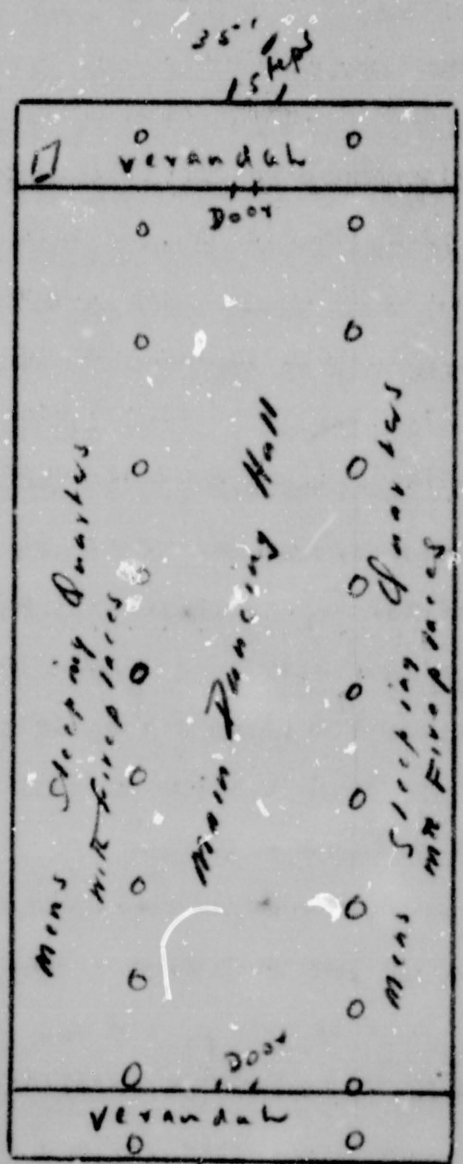 35'
Steps
verandah
Door
Mens Sleeping Quarters
with Fireplaces
Main Dancing Hall
Mens Sleeping Quarters
with Fireplaces
Door
verandah